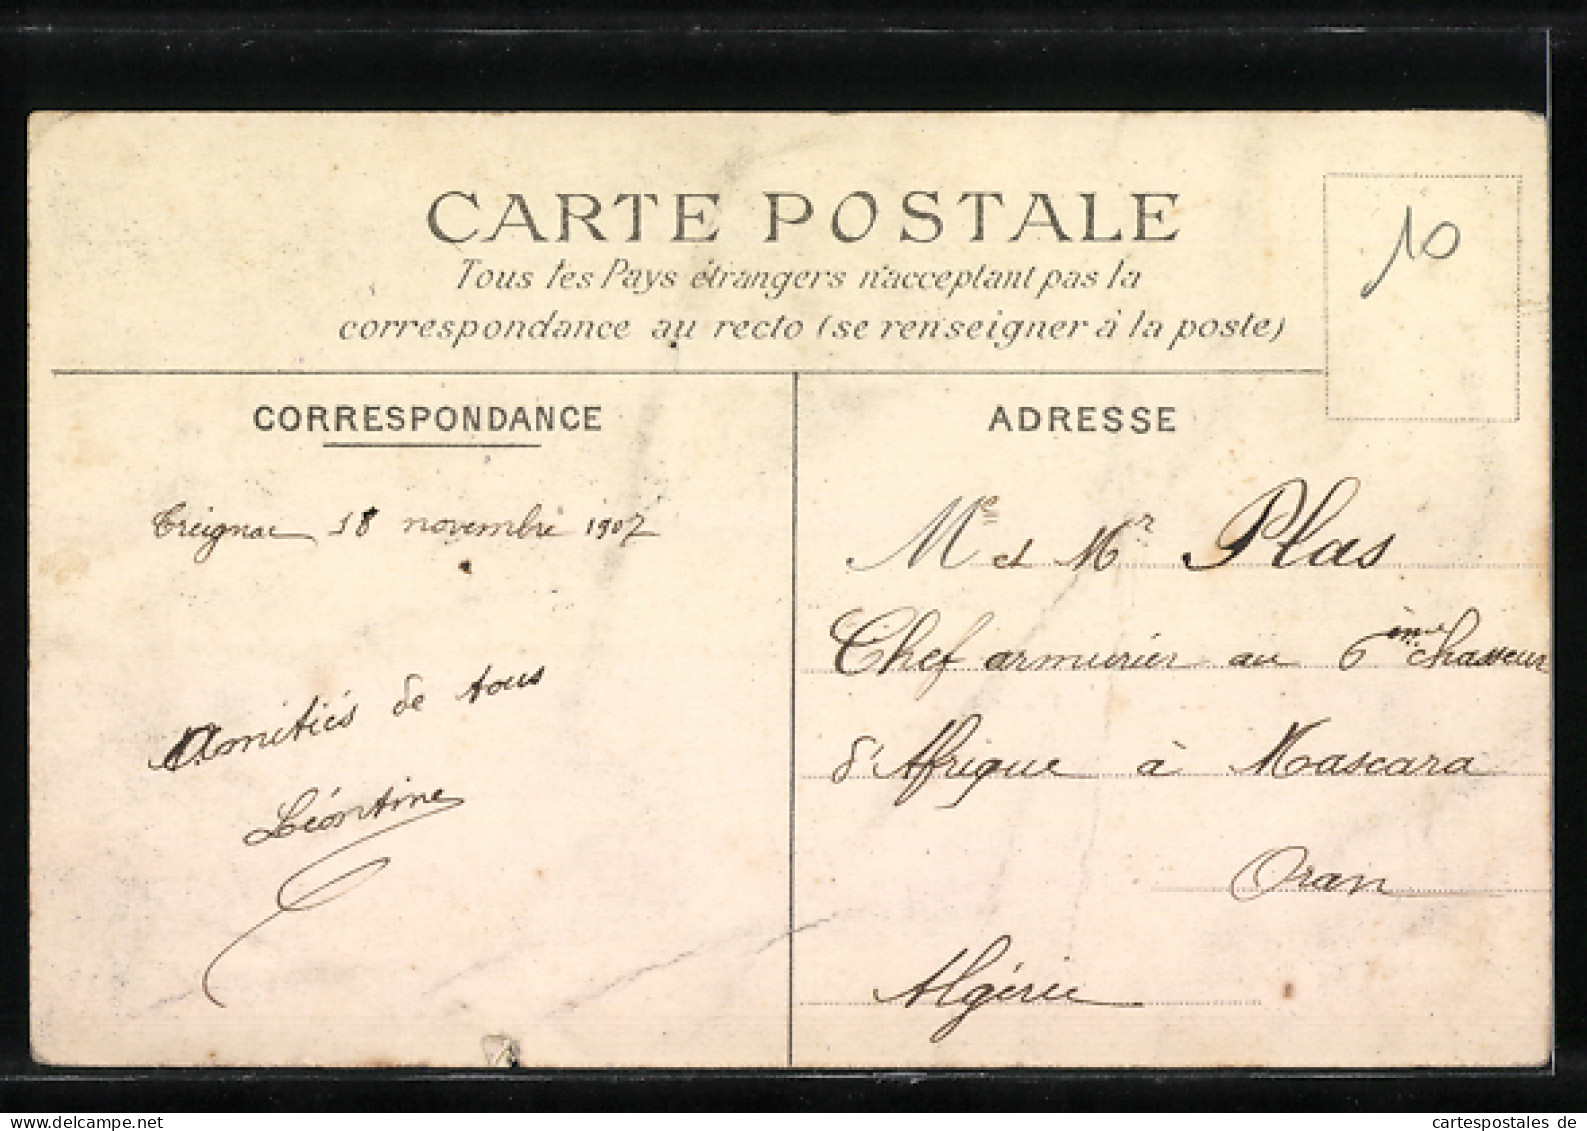 CARTE POSTALE
10
Tous les Pays étrangers n'acceptant pas la
correspondance au recto (se renseigner à la poste)
CORRESPONDANCE
Treignac 18 novembre 1907
Amitiés de tous
Léontine
ADRESSE
Me et Mr Plas
Chef armurier au 6ème chasseur
d'Afrique à Mascara
Oran
Algérie
cartespostales de